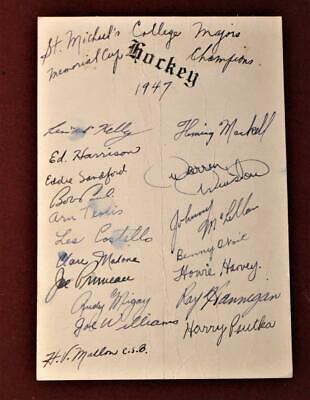 St. Michael's College Majors
Memorial Cup Champions.
Hockey
1947
Kelly
Ed. Harrison
Eddie Sandford
Bob
Les Costello
Clary Malone
Joe Primeau
Rudy Migay
Joe Williams
H. V. Mallon C.S.B.
Fleming Mackell
Warren Winston
Johnny McLellan
Benny Woit
Howie Harvey.
Ray Hannigan
Harry Psutka